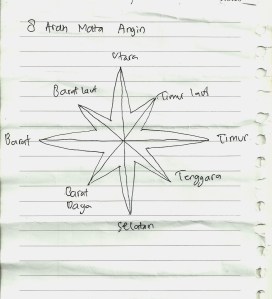 8 Arah Mata Angin
Utara
Barat laut
Timur laut
Barat
Timur
Tenggara
Barat
Daya
Selatan